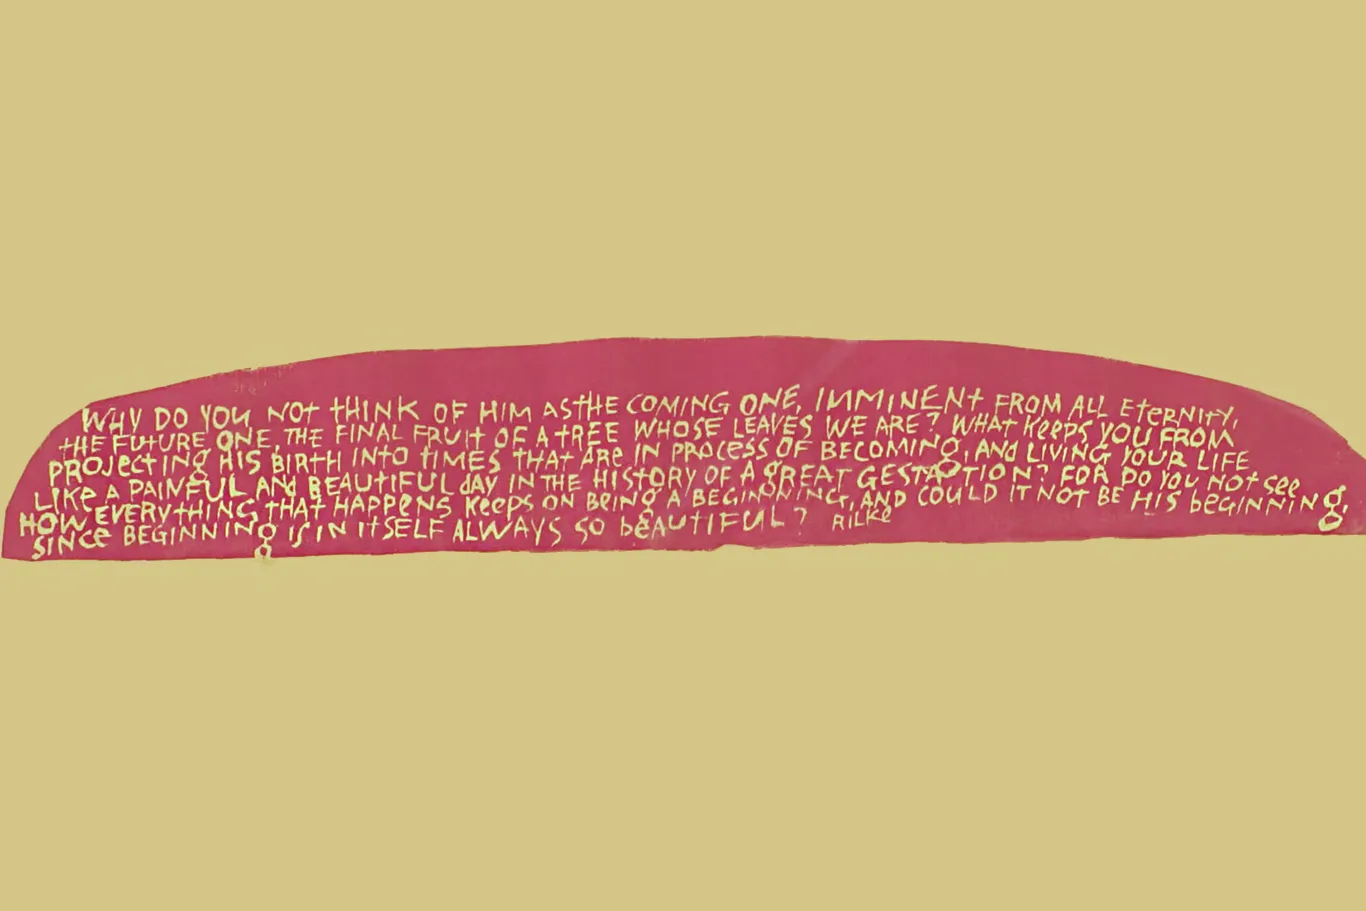 WHY DO YOU NOT THINK OF HIM AS THE COMING ONE, IMMINENT FROM ALL ETERNITY,
THE FUTURE ONE, THE FINAL FRUIT OF A TREE WHOSE LEAVES WE ARE? WHAT KEEPS YOU FROM
PROJECTING HIS BIRTH INTO TIMES THAT ARE IN PROCESS OF BECOMING, AND LIVING YOUR LIFE
LIKE A PAINFUL AND BEAUTIFUL DAY IN THE HISTORY OF A GREAT GESTATION? FOR DO YOU NOT SEE
HOW EVERYTHING THAT HAPPENS KEEPS ON BEING A BEGINNING, AND COULD IT NOT BE HIS BEGINNING,
SINCE BEGINNING IS IN ITSELF ALWAYS SO BEAUTIFUL? RILKE